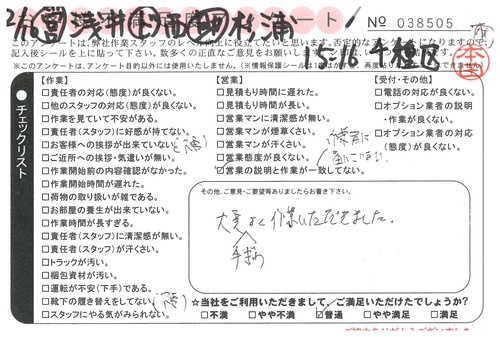 2/16 営 浅井 土 酒 朝 杉浦 ート
№ 038505
このアンケートは、弊社作業スタッフのレベル向上に役立てたいと思います。否定的なアンケートになりますので、
記入後シールを上に貼って下さい。数多くの正直なご意見をお願いします。
15-16 千種区
【作業】
□責任者の対応(態度)が良くない。
□他のスタッフの対応(態度)が良くない。
□作業を見ていて不安がある。
□責任者(スタッフ)に好感が持てない。
□お客様への挨拶が出来ていない。
□ご近所への挨拶・気遣いが無い。
□作業開始前の内容確認がなかった。
□作業開始時間が遅れた。
□荷物の取り扱いが雑である。
□お部屋の養生が出来ていない。
□作業時間が長すぎる。
□責任者(スタッフ)に清潔感が無い。
□責任者(スタッフ)が汗くさい。
□トラックが汚い。
□梱包資材が汚い。
□運転が不安(下手)である。
□靴下の履き替えをしてない
□スタッフにやる気がみられない。
チェックリスト
【営業】
□見積もり時間に遅れた。
□見積もり時間が長い。
□営業マンに清潔感が無い。
□営業マンが煙草くさい。
□営業マンが汗くさい。
□営業態度が良くない。
□営業の説明と作業が一致してない。
作業者に
【受付・その他】
□電話の対応が良くない。
□オプション業者の説明
・作業が良くない。
□オプション業者の対応
(態度)が良くない。
その他、ご意見・ご要望等ありましたらお書き下さい。
大変よく作業いただきました。
手ぎわ
☆当社をご利用いただきまして、ご満足いただけたでしょうか?
□不満 □やや不満 ☑普通 □やや満足 □満足
ご協力ありがとうございました